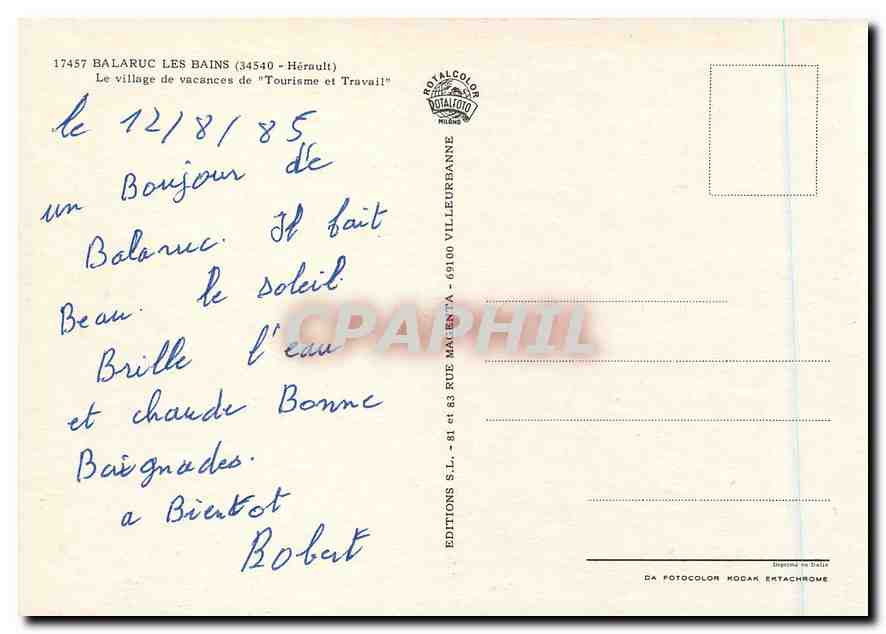 17457 BALARUC LES BAINS (34540 - Hérault)
Le village de vacances de "Tourisme et Travail"
le 12/8/85
un Boujour de
Balaruc. Il fait
Beau. le soleil
Brille l'eau
et chaude Bonne
Baignades.
a Bientot
Robert
EDITIONS S.L. - 81 et 83 RUE MAGENTA - 69100 VILLEURBANNE
ROTALCOLOR
ROTALFOTO
MILANO
CPAPHIL
Imprimé en Italie
DA FOTOCOLOR KODAK EKTACHROME